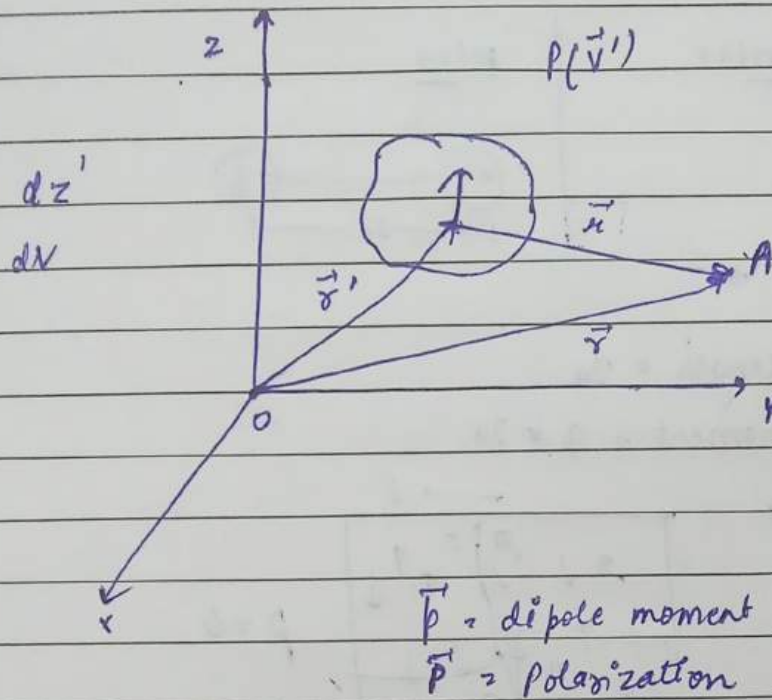 z
P(v⃗')
dz'
dV
r⃗'
r⃗
A
r⃗
O
y
x
p⃗ = dipole moment
P⃗ = Polarization